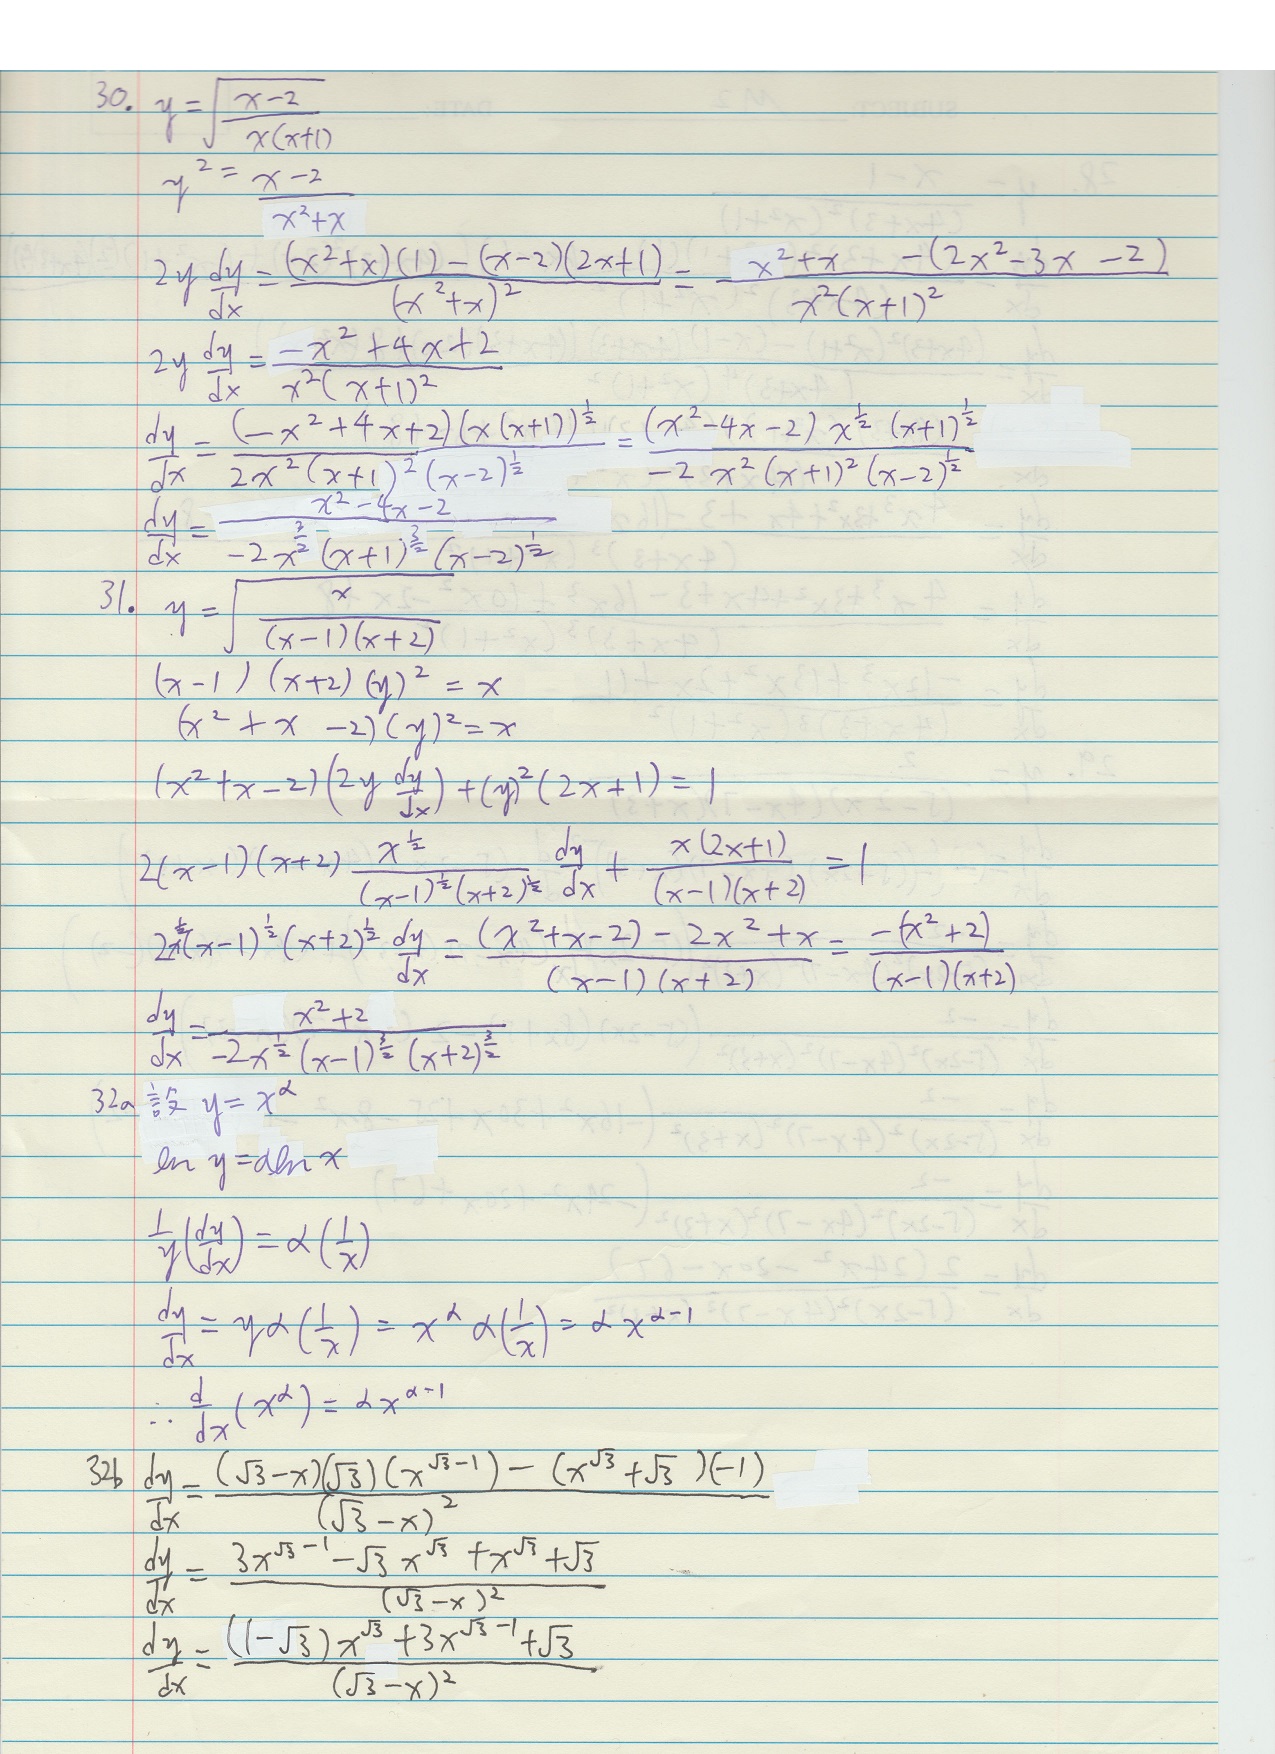 30. y = √((x-2)/(x(x+1)))
y² = (x-2)/(x²+x)
2y dy/dx = ((x²+x)(1) - (x-2)(2x+1))/(x²+x)² = (x²+x - (2x²-3x-2))/(x²(x+1)²)
2y dy/dx = (-x²+4x+2)/(x²(x+1)²)
dy/dx = ((-x²+4x+2)(x(x+1))^(1/2))/(2x²(x+1)²(x-2)^(1/2)) = ((x²-4x-2) x^(1/2) (x+1)^(1/2))/(-2 x²(x+1)²(x-2)^(1/2))
dy/dx = (x²-4x-2)/(-2x^(3/2)(x+1)^(3/2)(x-2)^(1/2))
31. y = √(x/((x-1)(x+2)))
(x-1)(x+2)(y)² = x
(x²+x-2)(y)² = x
(x²+x-2)(2y dy/dx) + (y)²(2x+1) = 1
2(x-1)(x+2) x^(1/2)/((x-1)^(1/2)(x+2)^(1/2)) dy/dx + x(2x+1)/((x-1)(x+2)) = 1
2x^(1/2)(x-1)^(1/2)(x+2)^(1/2) dy/dx = ((x²+x-2) - 2x²+x)/((x-1)(x+2)) = -(x²+2)/((x-1)(x+2))
dy/dx = (x²+2)/(-2x^(1/2)(x-1)^(3/2)(x+2)^(3/2))
32a 設 y = x^α
ln y = α ln x
1/y (dy/dx) = α(1/x)
dy/dx = yα(1/x) = x^α α(1/x) = αx^(α-1)
∴ d/dx (x^α) = αx^(α-1)
32b dy/dx = ((√3-x)(√3)(x^(√3-1)) - (x^√3+√3)(-1))/(√3-x)²
dy/dx = (3x^(√3-1) - √3 x^√3 + x^√3 + √3)/(√3-x)²
dy/dx = ((1-√3)x^√3 + 3x^(√3-1) + √3)/(√3-x)²